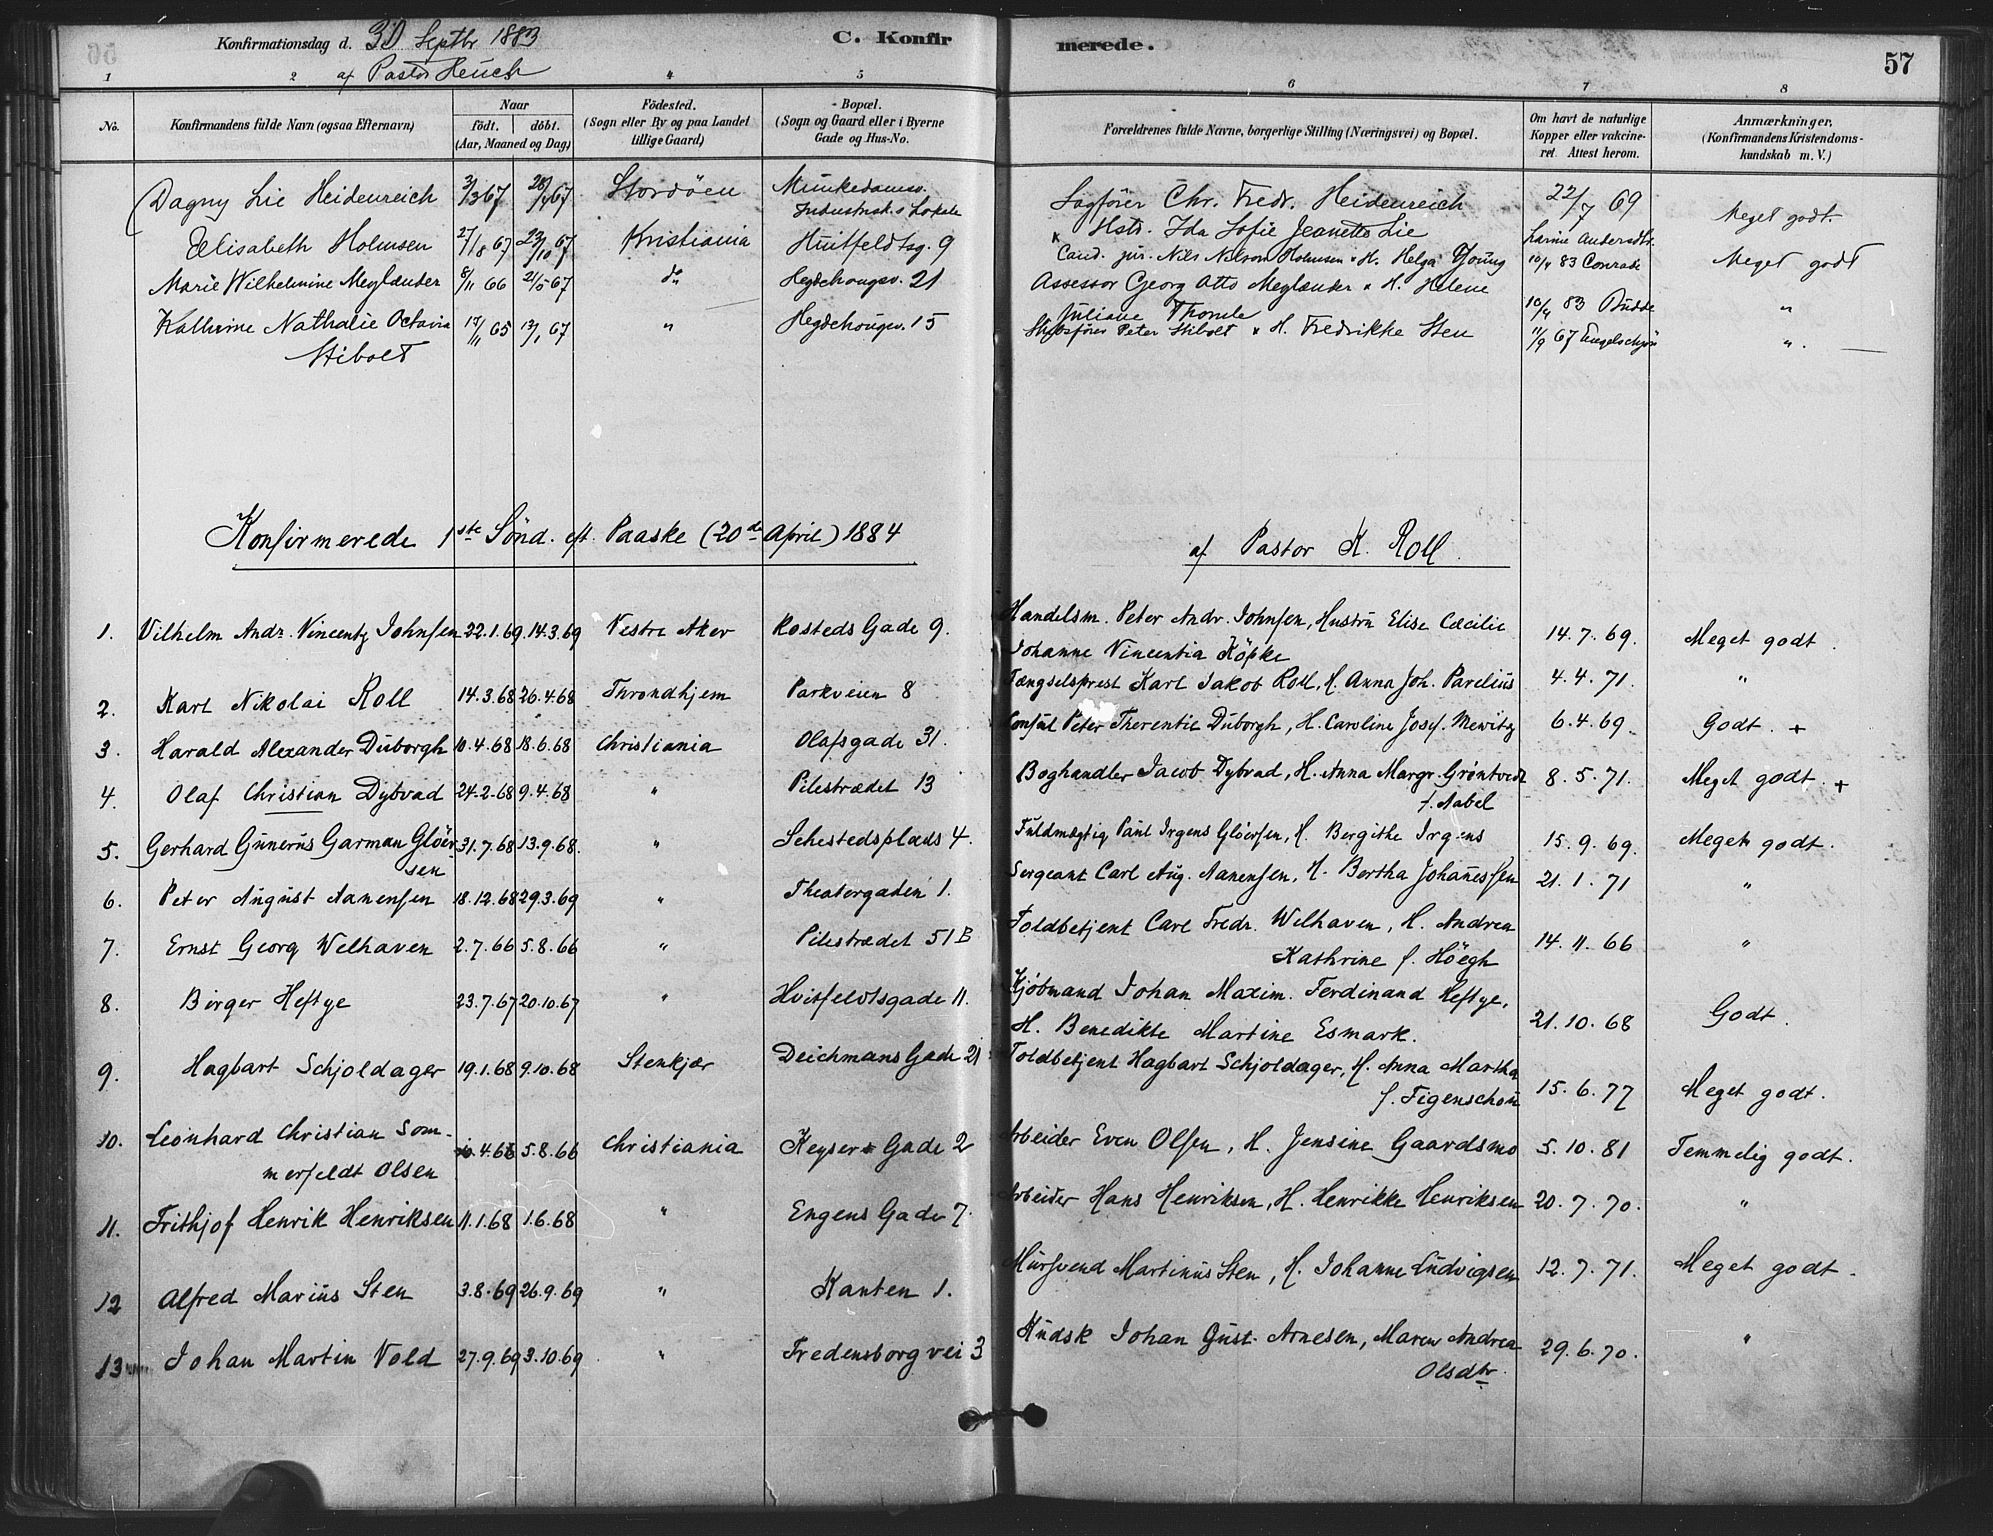 Konfirmationsdag d. 30 Septbr 1883 C. Konfirmerede. 57
af Pastor Heuch
1 2 4 5 6 7 8
No. Konfirmandens fulde Navn (ogsaa Efternavn) Naar födt. döbt. (Aar, Maaned og Dag) Födested. (Sogn eller By og paa Landet tillige Gaard) Bopæl. (Sogn og Gaard eller i Byerne Gade og Hus-No. Forældrenes fulde Navne, borgerlige Stilling (Næringsvei) og Bopæl. Om havt de naturlige Kopper eller vakcineret. Attest herom. Anmærkninger, (Konfirmandens Kristendomskundskab m. V.)
Dagny Lie Heidenreich 3/3 67 28/7 67 Stordöen Munkedamsv. Sagförer Chr. Fredr. Heidenreich 22/7 69 Meget godt.
Industrisk.s Lokale Hstr. Ida Sofie Jeanette Lie
Elisabeth Holmsen 27/8 67 23/10 67 Kristiania Huitfeldtsg. 9 Cand. jur. Nils Nilson Holmsen & H. Helga Young Larine Andersdtr. 10/4 83 Conrade Meget godt
Marie Wilhelmine Meylænder 8/11 66 21/5 67 do Hegdehougsv. 21 Assessor Georg Otto Meylænder & H. Helene 10/4 83 Budde "
Juliane Thomle
Kathrine Nathalie Octavia 17/11 65 13/1 67 " Hegdehougsv. 15 Skibsförer Peter Stibolt & H. Fredrikke Sten 11/9 67 Engelschjön "
Stibolt
Konfirmerede 1ste Sönd. eft. Paaske (20de April) 1884 af Pastor K. Roll.
1. Vilhelm Andr. Vincentz Johnsen 22.1.69 14.3.69 Vestre Aker Rosteds Gade 9. Handelsm. Peter Andr. Johnsen, Hustru Elise Cæcilie 14.7.69. Meget godt.
Johanne Vincentia Köpke
2. Karl Nikolai Roll 14.3.68 26.4.68 Throndhjem Parkveien 8 Fængselsprest Karl Jakob Roll, H. Anna Joh. Parelius 4.4.71. "
3. Harald Alexander Duborgh 10.4.68 18.6.68 Christiania Olafsgade 31. Consul Peter Therentie Duborgh, H. Caroline Josef. Mewitz 6.4.69. Godt. +
4. Olaf Christian Dybvad 24.2.68 9.4.68 " Pilestrædet 13 Boghandler Jacob Dybvad, H. Anna Margr. Gröntvedt 8.5.71. Meget godt. +
f. Aabel
5. Gerhard Gunerus Garman Glöer- 31.7.68 13.9.68. " Sehestedsplads 4. Fuldmægtig Paul Irgens Glöersen, H. Bergithe Irgens 15.9.69. Meget godt.
sen
6. Peter August Aanensen 18.12.68 29.3.69 " Theatergaden 1. Sergeant Carl Aug. Aanensen, H. Bertha Johanessen 21.1.71 "
7. Ernst Georg Welhaven 2.7.66 5.8.66 " Pilestrædet 51 B Toldbetjent Carl Fredr. Welhaven, H. Andrea 14.11.66 "
Kathrine f. Höegh
8. Birger Heftye 23.7.67 20.10.67 " Hvitfeldtsgade 11. Kjöbmand Johan Maxim. Ferdinand Heftye, 21.10.68 Godt.
H. Benedikte Martine Esmark.
9. Hagbart Schjoldager 19.1.68 9.10.68 Stenkjær Deichmans Gade 21 Toldbetjent Hagbart Schjoldager, H. Anna Martha 15.6.77 Meget godt.
f. Figenschou
10. Leonhard Christian Som- 4.66 5.8.66 Christiania Keysers Gade 2 Arbeider Even Olsen, H. Jensine Gaardsmo 5.10.81 Temmelig godt.
merfeldt Olsen
11. Frithjof Henrik Henriksen 11.1.68 1.6.68 " Engens Gade 7. Arbeider Hans Henriksen, H. Henrikke Henriksen 20.7.70. "
12 Alfred Marius Sten 3.8.69 26.9.69 " Kanten 1. Mursvend Martinus Sten, H. Johanne Ludvigsen 12.7.71. Meget godt.
13 Johan Martin Vold 27.9.69 3.10.69 " Fredensborgvei 3 Kudsk Johan Gust. Arnesen, Maren Andrea 29.6.70. "
Olsdtr.